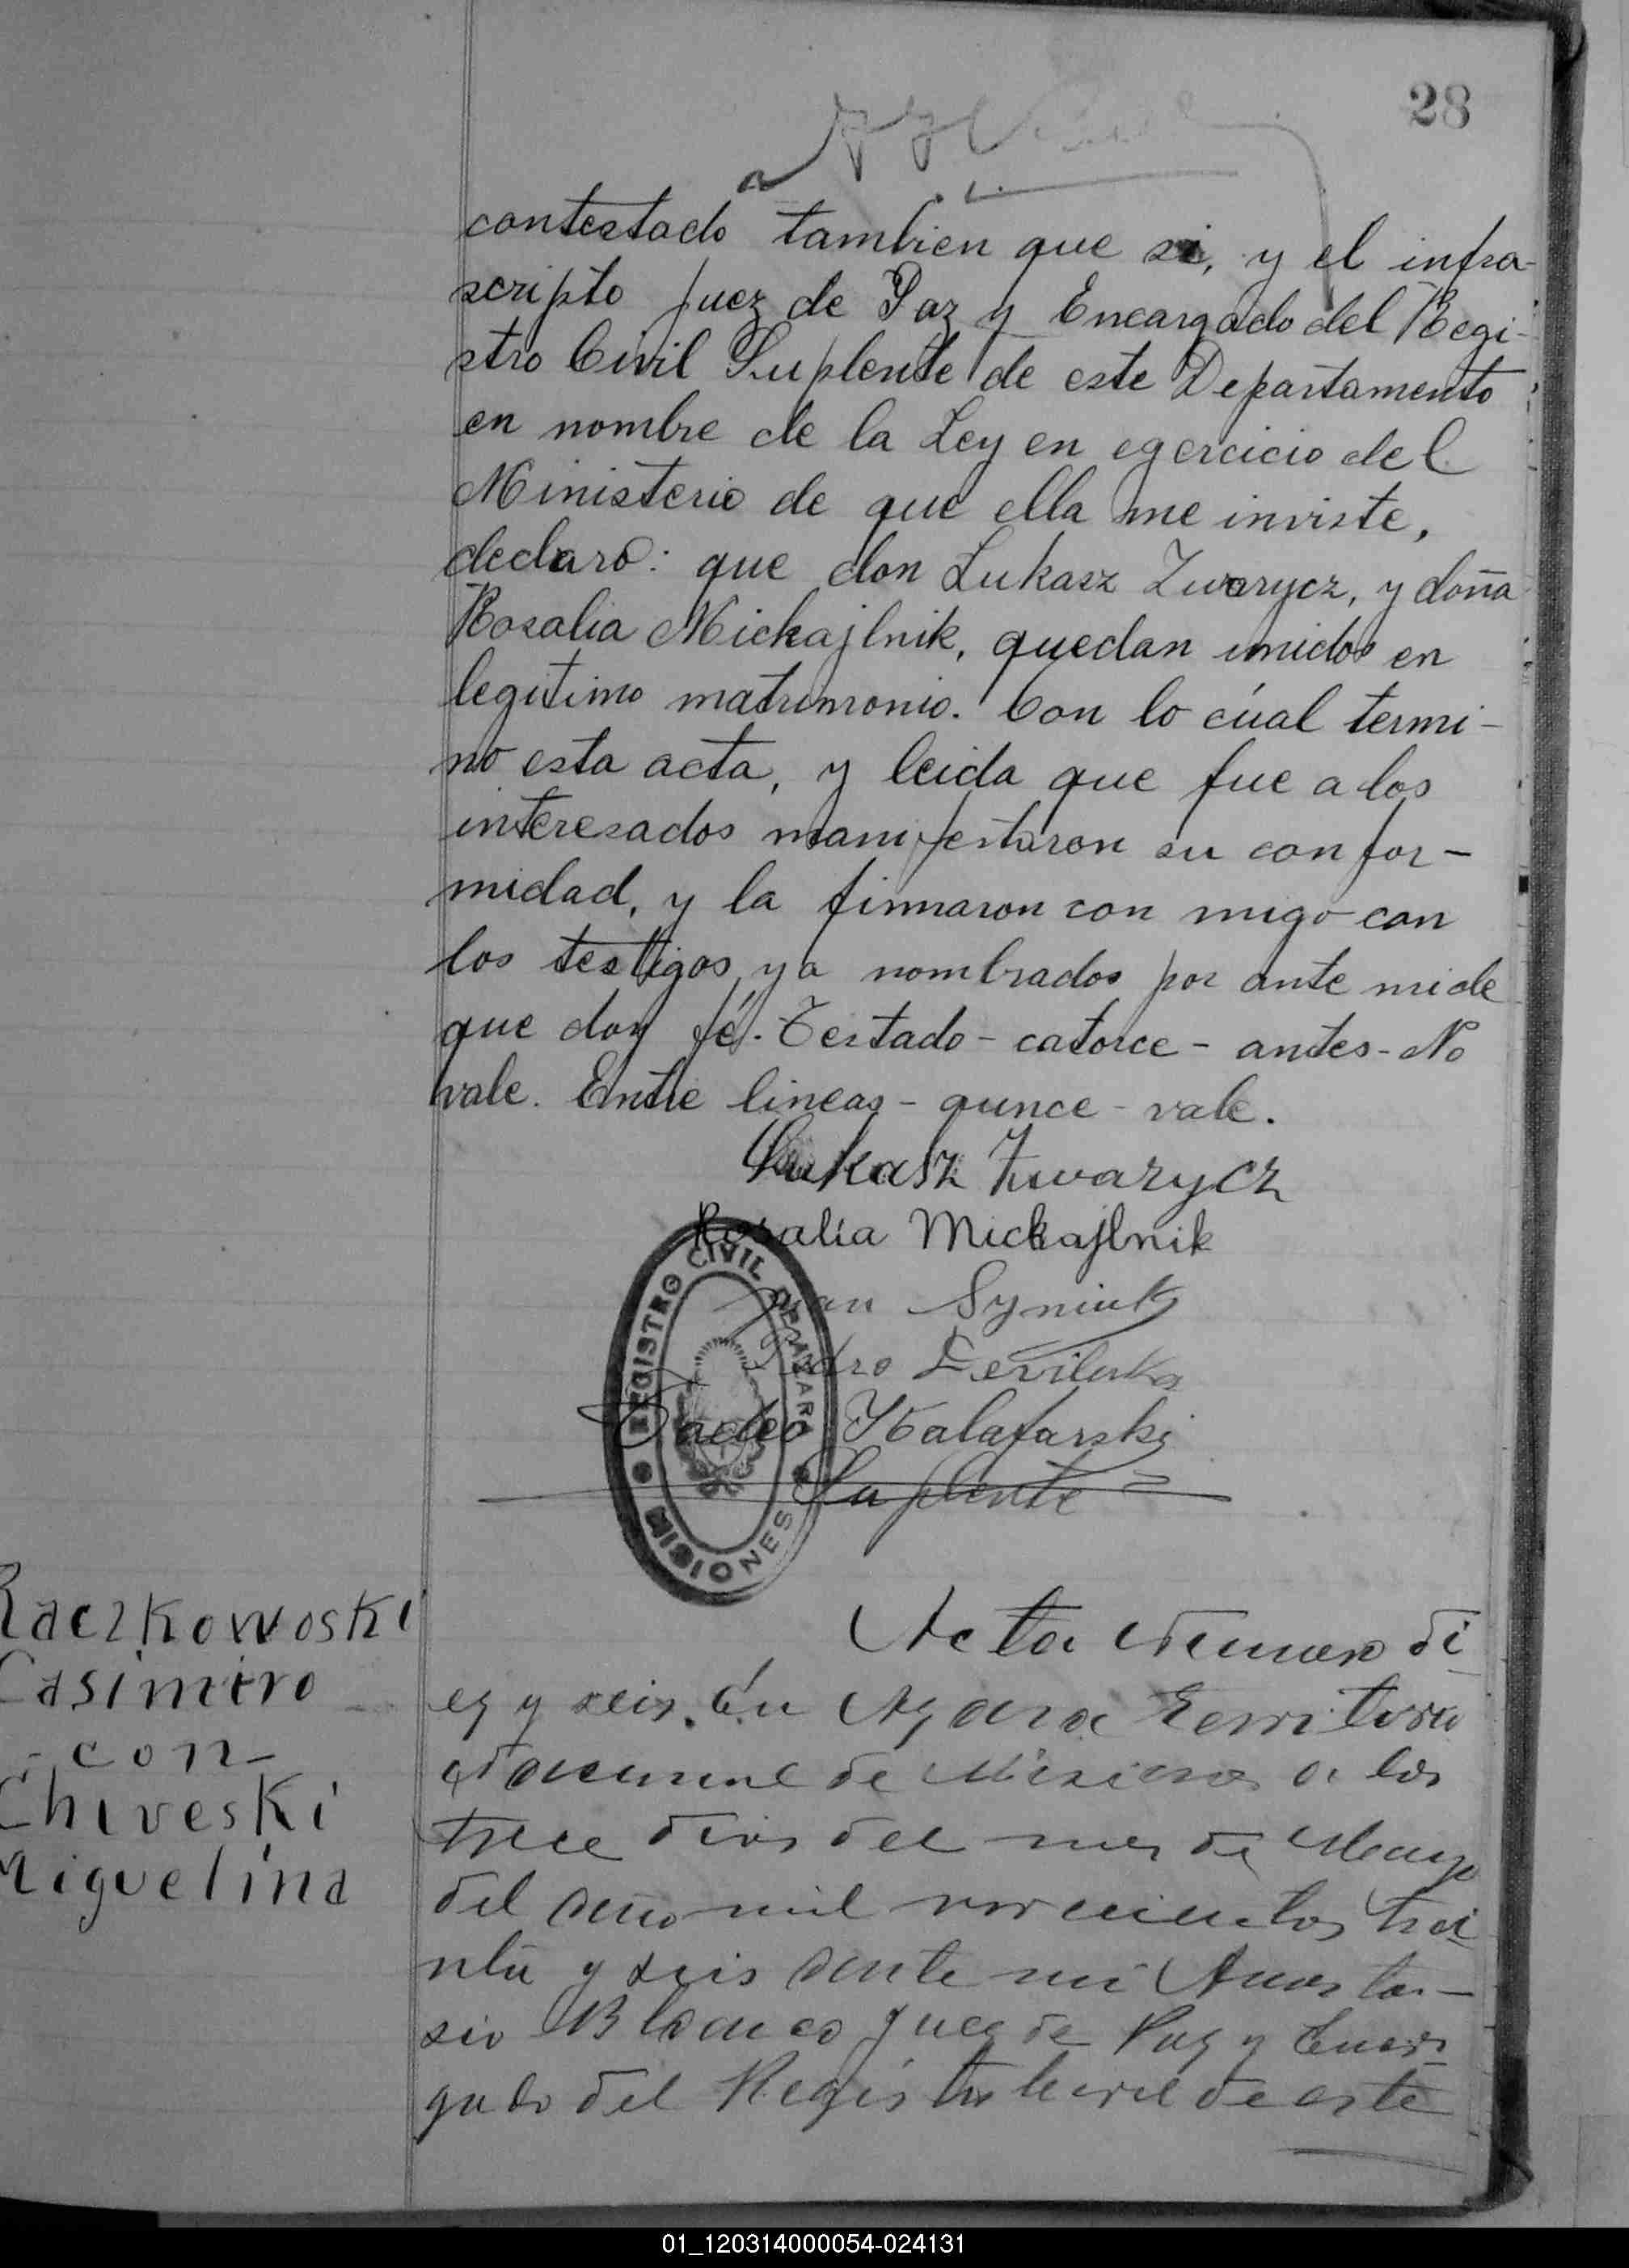 28
contestado tambien que si, y el infra-
scripto Juez de Paz y Encargado del Regi-
stro Civil Suplente de este Departamento
en nombre de la Ley en egercicio del
Ministerio de que ella me inviste,
declaro: que don Lukasz Zwarycz, y doña
Rosalia Mickajlnik, quedan unidos en
legitimo matrimonio. Con lo cúal termi-
no esta acta, y leida que fue a los
interesados manifestaron su confor-
midad, y la firmaron con migo con
los testigos ya nombrados por ante mi de
que doy fé. Testado - catorce - antes - No
vale. Entre lineas - qunce - vale.
Lukasz Zwarycz
Rosalia Mickajlnik
Juan Syniuk
Pedro
Tadeo Kalafarski
Suplente
REGISTRO CIVIL DE AZARA
MISIONES
Raczkowoski
Casimiro
- con -
Chiveski
Miguelina
Acta Numero di
ez y seis. En Azara Territorio
Nacional de Misiones a los
trece dias del mes de Mayo
del año mil novecientos trei
nta y seis ante mi Anasta-
sio Blanco Juez de Paz y Encar
gado del Registro Civil de este
01_120314000054-024131